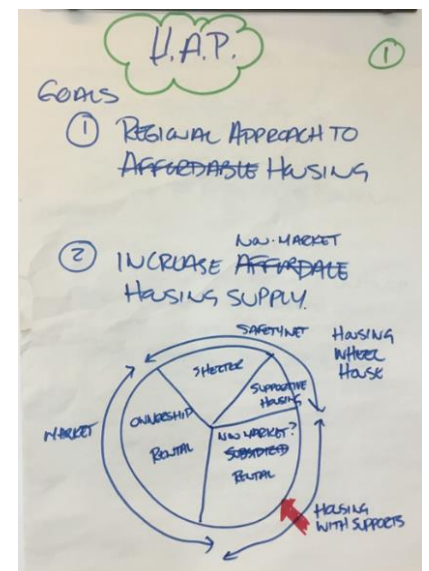 H.A.P.
1
GOALS
1 REGIONAL APPROACH TO
AFFORDABLE HOUSING
NON-MARKET
2 INCREASE AFFORDALE
HOUSING SUPPLY.
SAFETYNET
HOUSING
WHEEL
HOUSE
SHELTER
SUPPORTIVE
HOUSING
MARKET
OWNERSHIP
RENTAL
NON MARKET?
SUBSIDIZED
RENTAL
HOUSING
WITH SUPPORTS